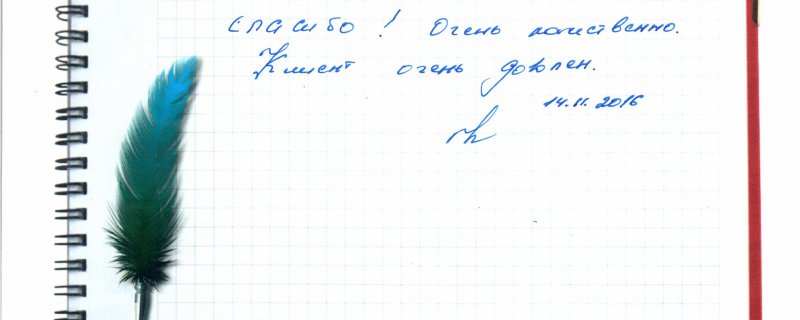 Спасибо! Очень качественно.
Клиент очень доволен.
14.11.2016